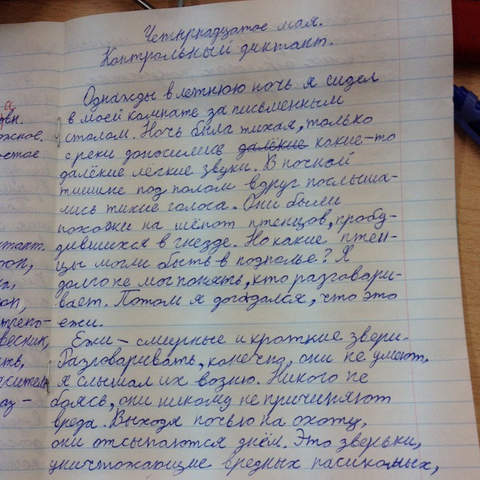 Четырнадцатое мая.
Контрольный диктант.
Однажды в летнюю ночь я сидел
в моей комнате за письменным
столом. Ночь была тихая, только
с реки доносились далёкие какие-то
далёкие легкие звуки. В ночной
тишине под полом вдруг послыша-
лись тихие голоса. Они были
похожи на шёпот птенцов, пробу-
дившихся в гнезде. Но какие птен-
цы могли быть в подполье? Я
долго не мог понять, кто разговари-
вает. Потом я догадался, что это
ежи.
Ежи – смирные и кроткие звери.
Разговаривать, конечно, они не умеют.
Я слышал их возню. Никого не
боясь, они никому не причиняют
вреда. Выходя ночью на охоту,
они отсыпаются днём. Это зверьки,
уничтожающие вредных насикомых,